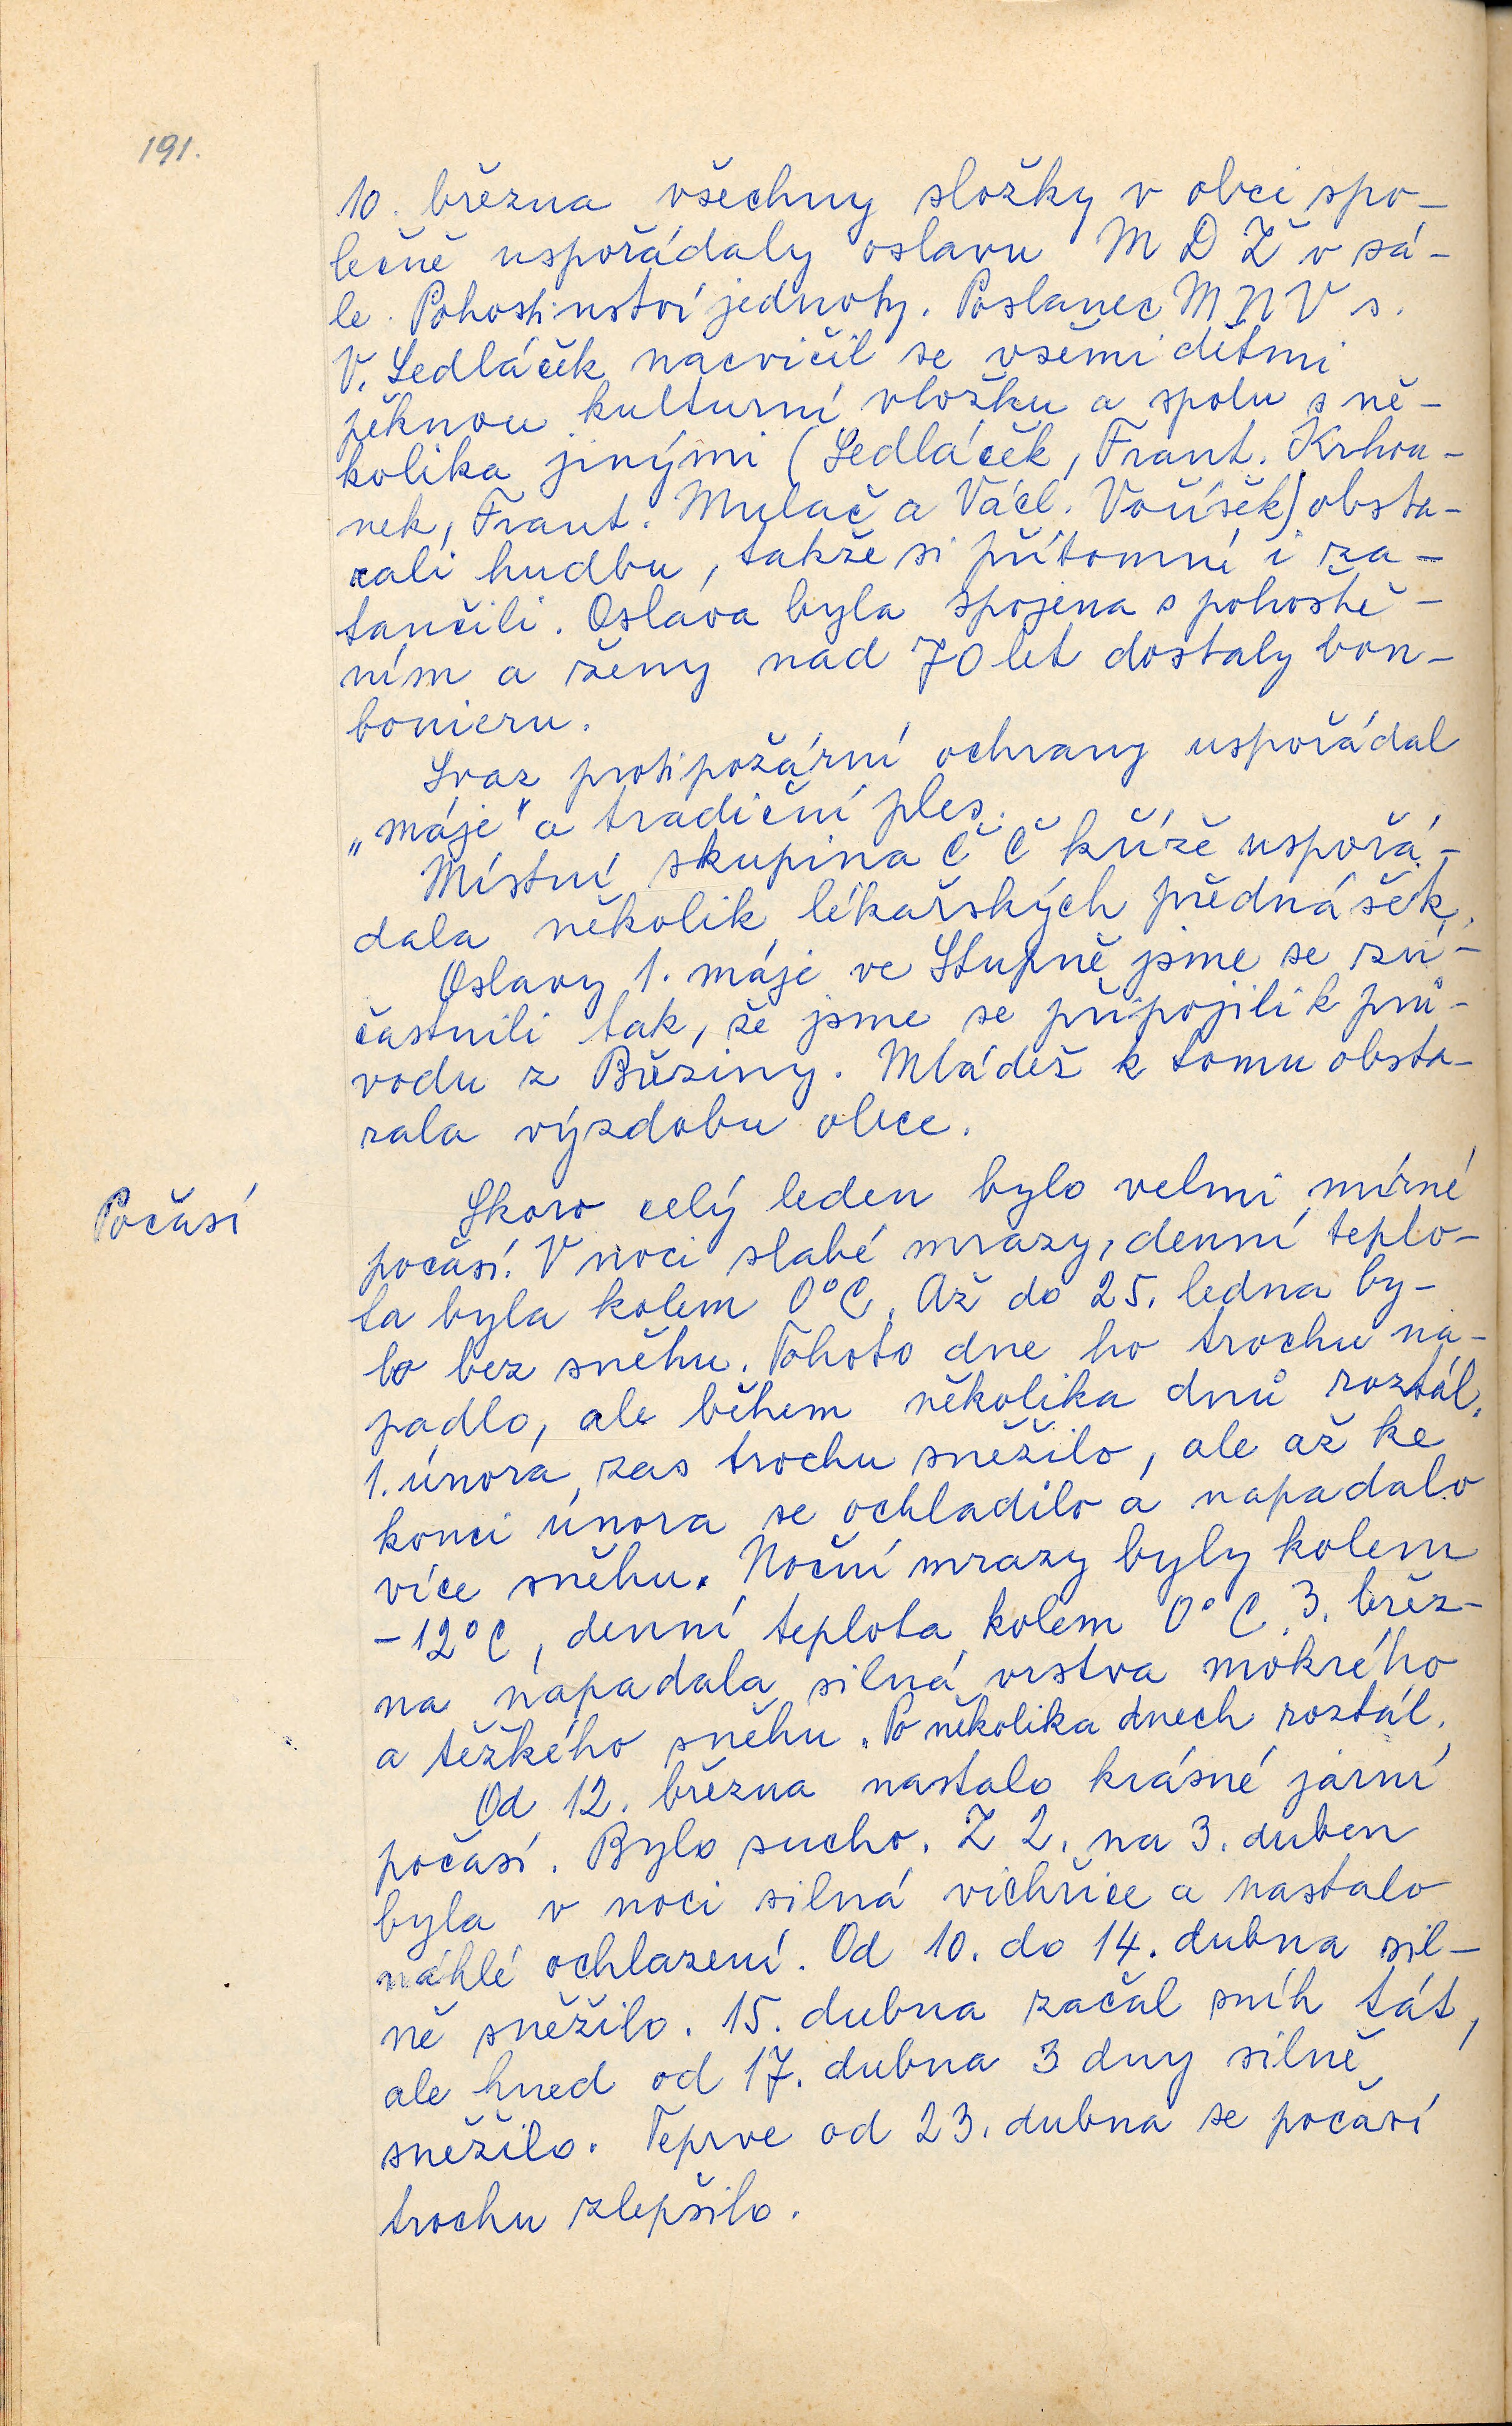 191.
10. března všechny složky v obci spo-
lečně uspořádaly oslavu M D Ž v sá-
le Pohostinství jednoty. Poslanec M N V s.
V. Sedláček nacvičil se všemi dětmi
pěknou kulturní vložku a spolu s ně-
kolika jinými (Sedláček, Frant. Krhou-
nek, Frant. Mulač a Václ. Voříšek) obsta-
rali hudbu, takže si přítomní i za-
tančili. Oslava byla spojena s pohoště-
ním a ženy nad 70 let dostaly bon-
bonieru.
Svaz protipožární ochrany uspořádal
„máje" a tradiční ples.
Místní skupina Č Č kříže uspořá-
dala několik lékařských přednášek.
Oslavy 1. máje ve Stupně jsme se zú-
častnili tak, že jsme se připojili k prů-
vodu z Březiny. Mládež k tomu obsta-
rala výzdobu obce.
Počasí
Skoro celý leden bylo velmi mírné
počasí. V noci slabé mrazy, denní teplo-
ta byla kolem 0°C. Až do 25. ledna by-
lo bez sněhu. Tohoto dne ho trochu na-
padlo, ale během několika dnů roztál.
1. února zas trochu sněžilo, ale až ke
konci února se ochladilo a napadalo
více sněhu. Noční mrazy byly kolem
-12°C, denní teplota kolem 0°C. 3. břez-
na napadala silná vrstva mokrého
a těžkého sněhu. Po několika dnech roztál.
Od 12. března nastalo krásné jarní
počasí. Bylo sucho. Z 2. na 3. duben
byla v noci silná vichřice a nastalo
náhlé ochlazení. Od 10. do 14. dubna sil-
ně sněžilo. 15. dubna začal sníh tát,
ale hned od 17. dubna 3 dny silně
sněžilo. Teprve od 23. dubna se počasí
trochu zlepšilo.